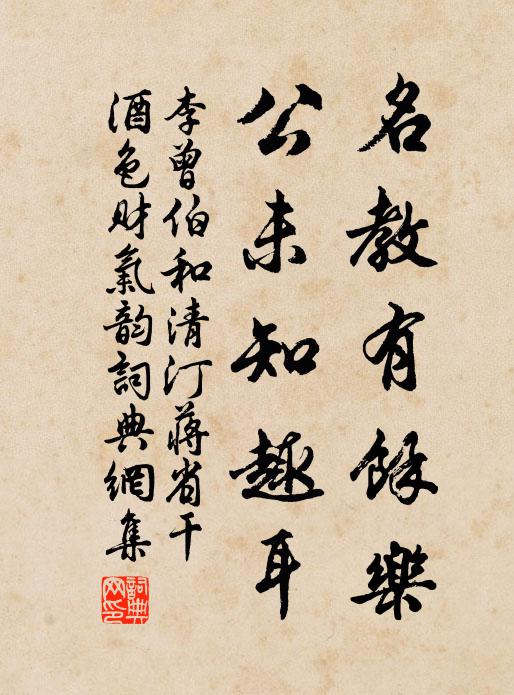 名教有餘樂
公未知趣耳
李曾伯和清汀蔣省干
酒色財氣韵詞典網集
詞典網印